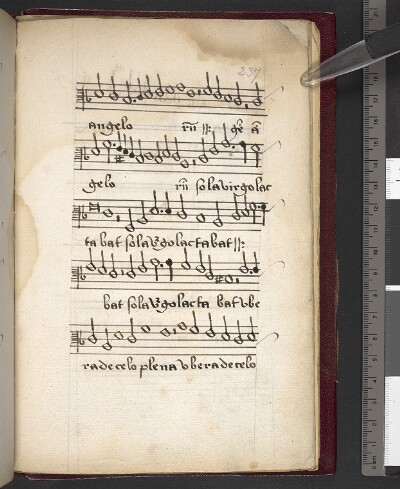 angelo rū :||: gē ā
gelo rū sola virgo lac
ta bat sola v̄go lac ta bat :||:
bat sola v̄go lac ta bat v be
ra de celo plena v bera de celo